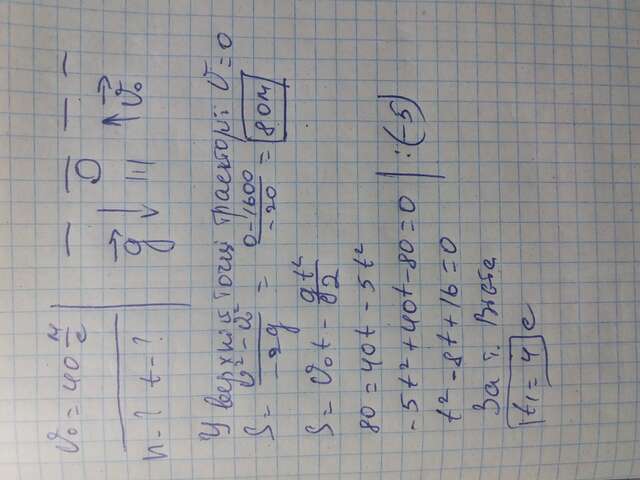 v₀ = 40 м/с
h - ? t - ?
g⃗ v⃗₀
У верхній точці траєкторії v = 0
S = (v² - v²)/(-2g) = (0 - 1600)/(-20) = 80м
S = v₀t - gt²/2
80 = 40t - 5t²
-5t² + 40t - 80 = 0 | :(-5)
t² - 8t + 16 = 0
За т. Вієта
t₁ = 4 с